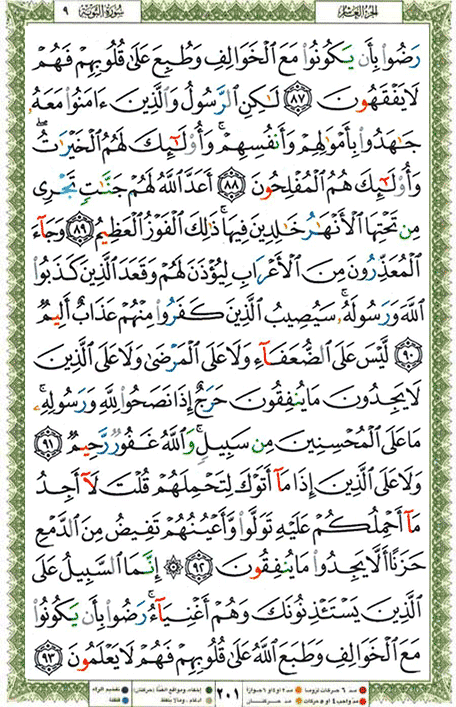 الجزء العاشر سورة التوبة ٩
رَضُوا۟ بِأَن يَكُونُوا۟ مَعَ ٱلْخَوَالِفِ وَطُبِعَ عَلَىٰ قُلُوبِهِمْ فَهُمْ
لَا يَفْقَهُونَ ٨٧ لَٰكِنِ ٱلرَّسُولُ وَٱلَّذِينَ ءَامَنُوا۟ مَعَهُۥ
جَٰهَدُوا۟ بِأَمْوَٰلِهِمْ وَأَنفُسِهِمْ ۚ وَأُو۟لَٰٓئِكَ لَهُمُ ٱلْخَيْرَٰتُ ۖ
وَأُو۟لَٰٓئِكَ هُمُ ٱلْمُفْلِحُونَ ٨٨ أَعَدَّ ٱللَّهُ لَهُمْ جَنَّٰتٍ تَجْرِى
مِن تَحْتِهَا ٱلْأَنْهَٰرُ خَٰلِدِينَ فِيهَا ۚ ذَٰلِكَ ٱلْفَوْزُ ٱلْعَظِيمُ ٨٩ وَجَآءَ
ٱلْمُعَذِّرُونَ مِنَ ٱلْأَعْرَابِ لِيُؤْذَنَ لَهُمْ وَقَعَدَ ٱلَّذِينَ كَذَبُوا۟
ٱللَّهَ وَرَسُولَهُۥ ۚ سَيُصِيبُ ٱلَّذِينَ كَفَرُوا۟ مِنْهُمْ عَذَابٌ أَلِيمٌ
٩٠ لَّيْسَ عَلَى ٱلضُّعَفَآءِ وَلَا عَلَى ٱلْمَرْضَىٰ وَلَا عَلَى ٱلَّذِينَ
لَا يَجِدُونَ مَا يُنفِقُونَ حَرَجٌ إِذَا نَصَحُوا۟ لِلَّهِ وَرَسُولِهِۦ ۚ
مَا عَلَى ٱلْمُحْسِنِينَ مِن سَبِيلٍ ۚ وَٱللَّهُ غَفُورٌ رَّحِيمٌ ٩١
وَلَا عَلَى ٱلَّذِينَ إِذَا مَآ أَتَوْكَ لِتَحْمِلَهُمْ قُلْتَ لَآ أَجِدُ
مَآ أَحْمِلُكُمْ عَلَيْهِ تَوَلَّوا۟ وَّأَعْيُنُهُمْ تَفِيضُ مِنَ ٱلدَّمْعِ
حَزَنًا أَلَّا يَجِدُوا۟ مَا يُنفِقُونَ ٩٢ ۞ إِنَّمَا ٱلسَّبِيلُ عَلَى
ٱلَّذِينَ يَسْتَـْٔذِنُونَكَ وَهُمْ أَغْنِيَآءُ ۚ رَضُوا۟ بِأَن يَكُونُوا۟
مَعَ ٱلْخَوَالِفِ وَطَبَعَ ٱللَّهُ عَلَىٰ قُلُوبِهِمْ فَهُمْ لَا يَعْلَمُونَ ٩٣
مد ٦ حركات لزوما مد ٢ او ٤ او ٦ جوازا إخفاء، ومواقع الغنة (حركتان) تفخيم الراء
مد واجب ٤ او ٥ حركات مد حركتان ٢٠١ ادغام، وما لا يلفظ قلقلة